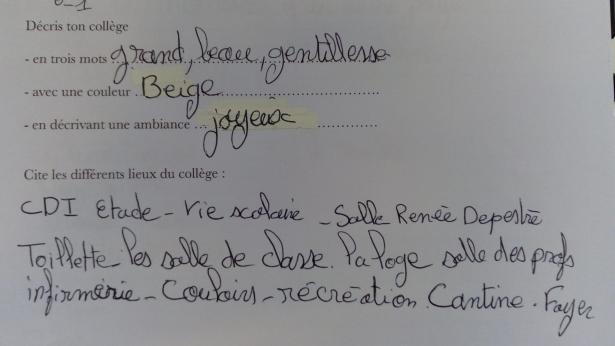 Décris ton collège
- en trois mots grand, beau, gentillesse
- avec une couleur . Beige ..............................
- en décrivant une ambiance ... joyeux ...............
Cite les différents lieux du collège :
CDI Etude - vie scolaire - Salle Renée Depestre
Toillette les salle de classe. la loge salle des profs
infirmerie - Couloirs - récréation. Cantine . Foyer